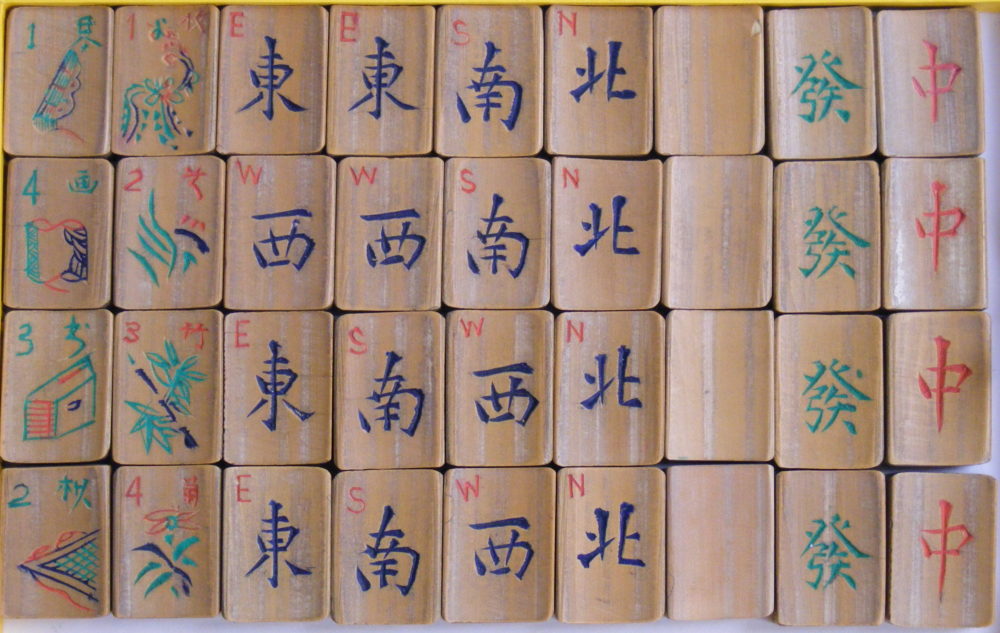 1 1 E 東 E 東 S 南 N 北 發 中
4 画 2 W 西 W 西 S 南 N 北 發 中
3 3 竹 E 東 S 南 W 西 N 北 發 中
2 4 E 東 S 南 W 西 N 北 發 中